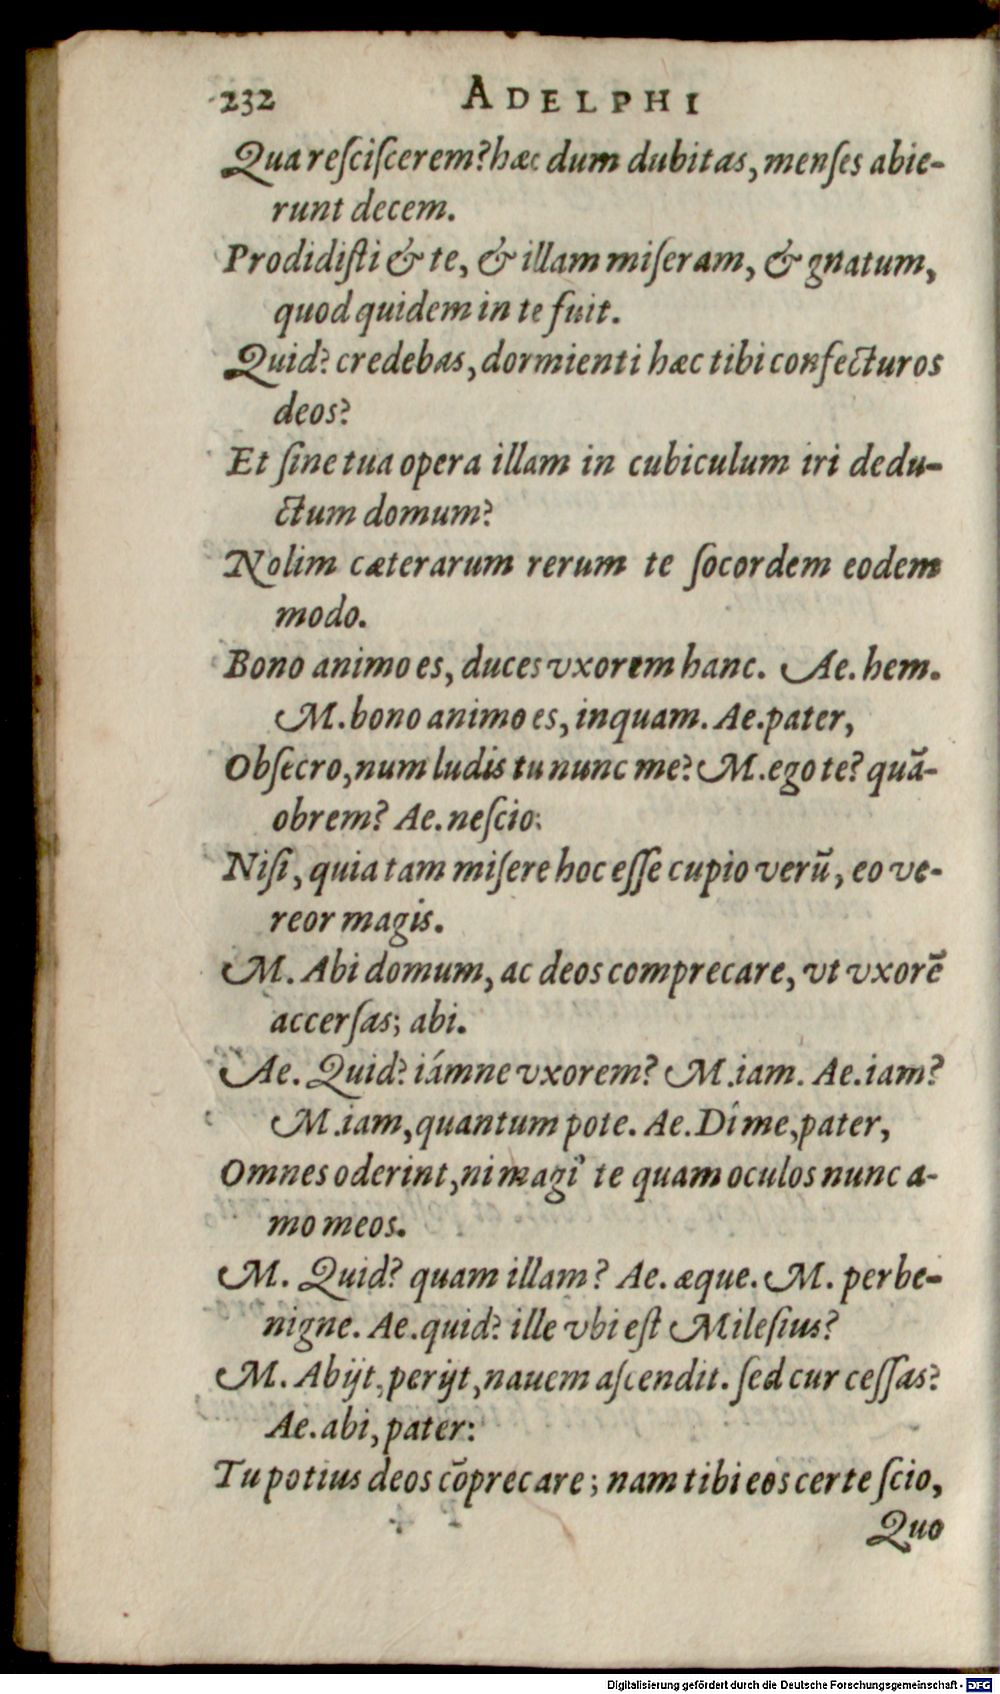 232 ADELPHI
Qua reſciſcerem? hæc dum dubitas, menſes abie-
runt decem.
Prodidiſti & te, & illam miſeram, & gnatum,
quod quidem in te fuit.
Quid? credebas, dormienti hæc tibi confecturos
deos?
Et ſine tua opera illam in cubiculum iri dedu-
ctum domum?
Nolim cæterarum rerum te ſocordem eodem
modo.
Bono animo es, duces vxorem hanc. Ae. hem.
M. bono animo es, inquam. Ae. pater,
Obſecro, num ludis tu nunc me? M. ego te? quã-
obrem? Ae. neſcio:
Niſi, quia tam miſere hoc eſſe cupio verũ, eo ve-
reor magis.
M. Abi domum, ac deos comprecare, vt vxorẽ
accerſas; abi.
Ae. Quid? iámne vxorem? M. iam. Ae. iam?
M. iam, quantum pote. Ae. Dî me, pater,
Omnes oderint, ni magi' te quam oculos nunc a-
mo meos.
M. Quid? quam illam? Ae. æque. M. perbe-
nigne. Ae. quid? ille vbi eſt Mileſius?
M. Abijt, perijt, nauem aſcendit. ſed cur ceſſas?
Ae. abi, pater:
Tu potius deos cõprecare; nam tibi eos certe ſcio,
Quo
Digitalisierung gefördert durch die Deutsche Forschungsgemeinschaft - DFG